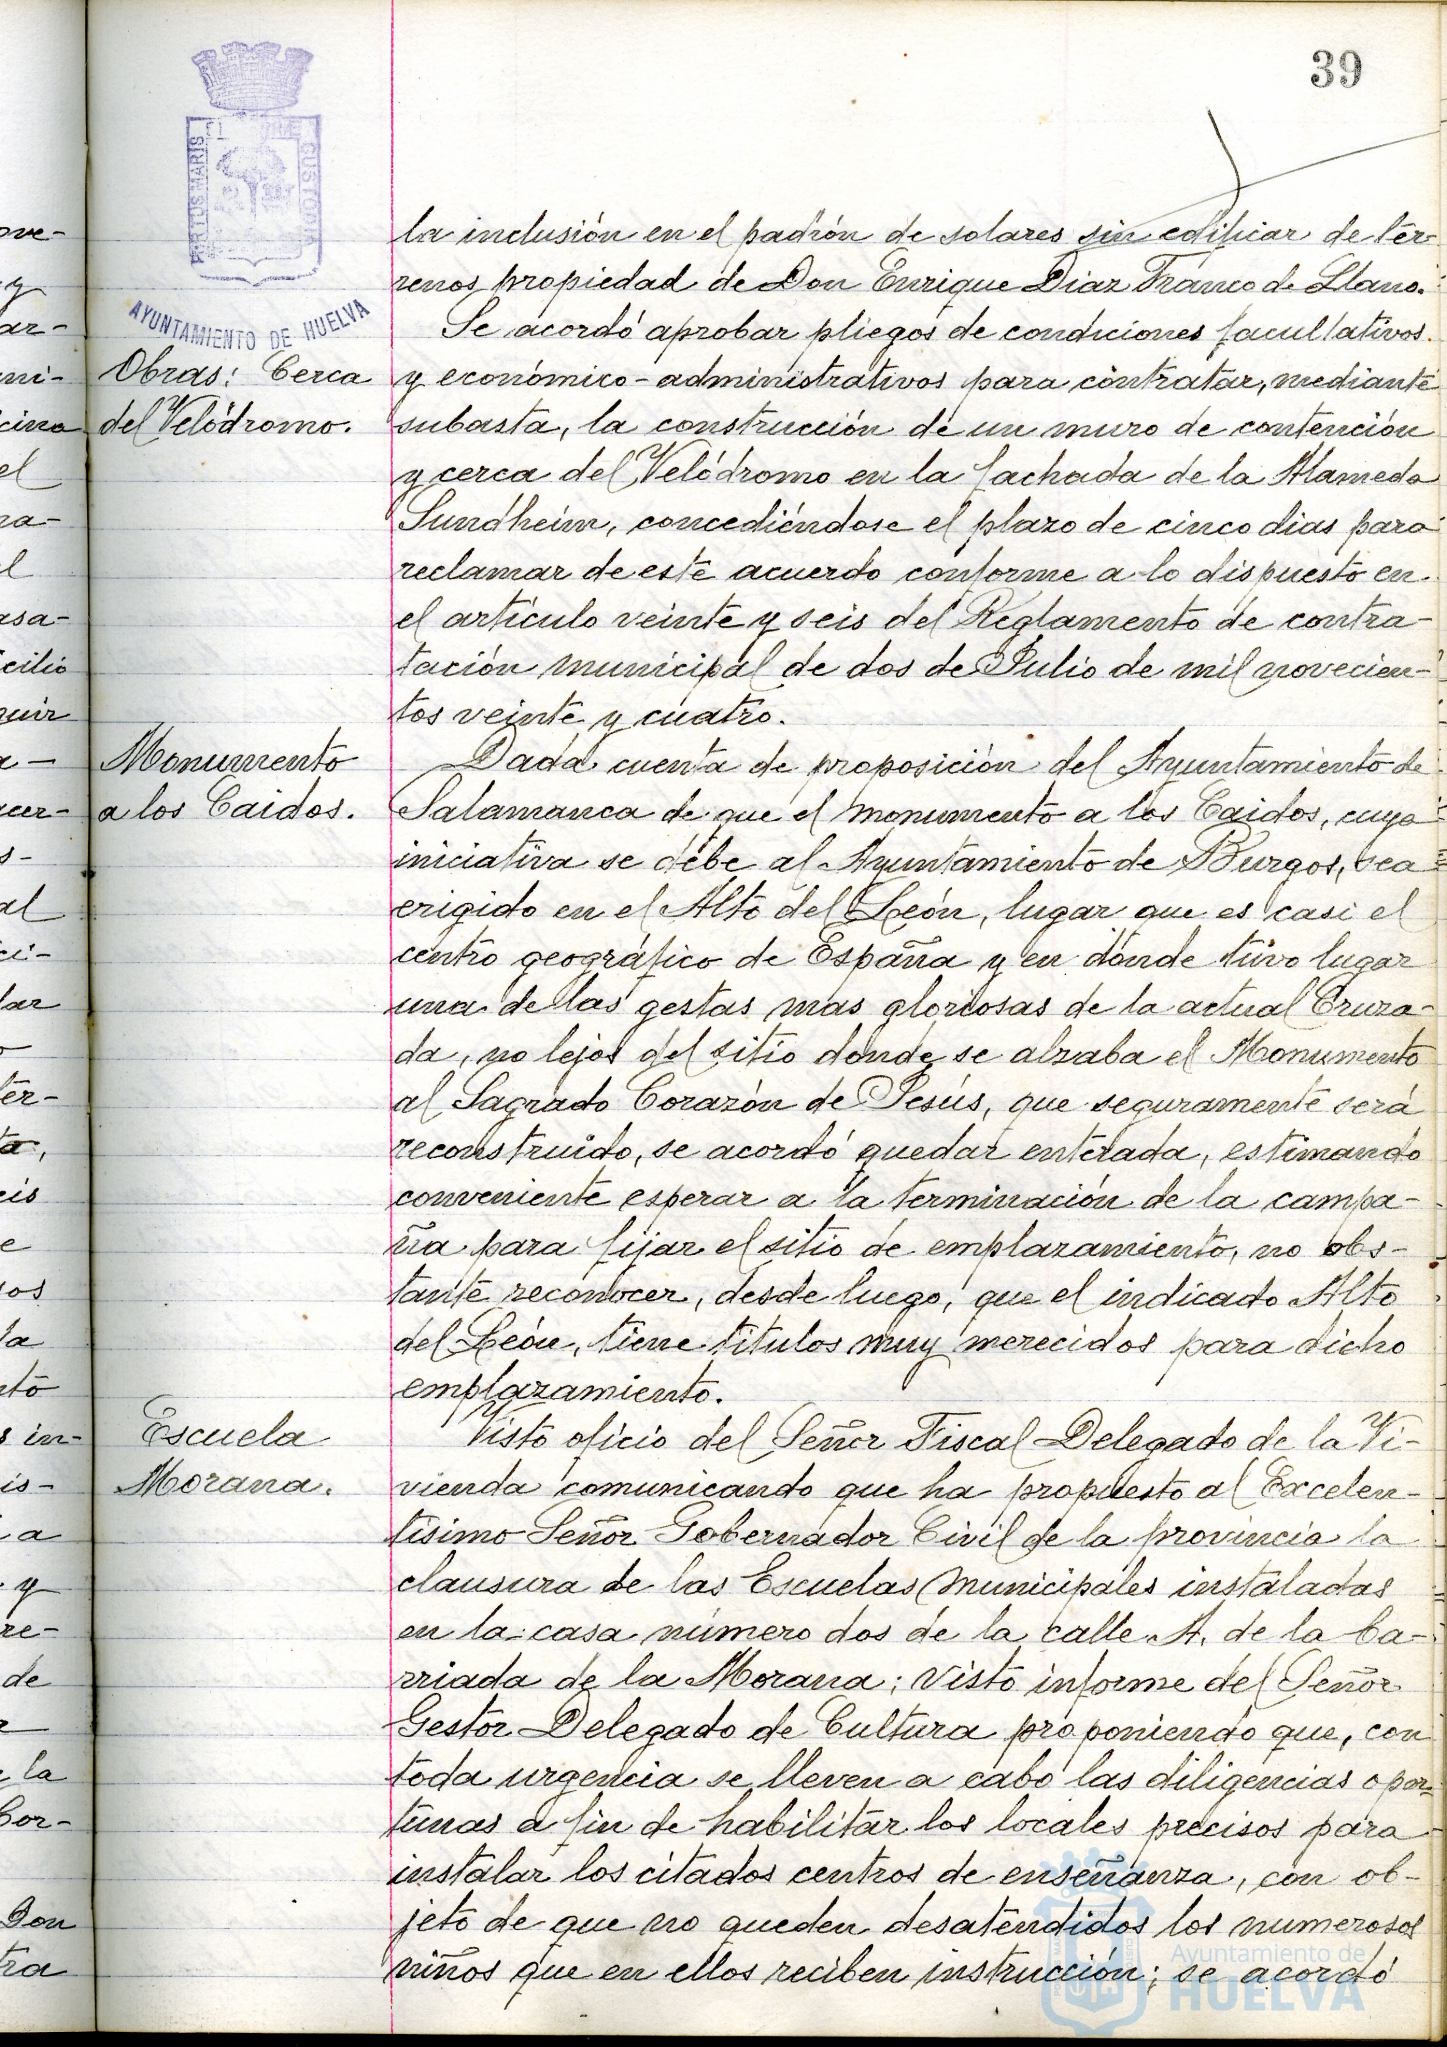 39
PERITUS MARIS
AYUNTAMIENTO DE HUELVA
la inclusión en el padrón de solares sin edificar de ter-
renos propiedad de Don Enrique Diaz Franco de Llano.
Se acordó aprobar pliegos de condiciones facultativos
Obras: Cerca
del Velódromo.
y económico-administrativos para contratar, mediante
subasta, la construcción de un muro de contención
y cerca del Velódromo en la fachada de la Alameda
Sundheim, concediéndose el plazo de cinco dias para
reclamar de este acuerdo conforme a lo dispuesto en
el artículo veinte y seis del Reglamento de contra-
tación municipal de dos de Julio de mil novecien-
tos veinte y cuatro.
Monumento
a los Caidos.
Dada cuenta de proposición del Ayuntamiento de
Salamanca de que el monumento a los Caidos, cuya
iniciativa se debe al Ayuntamiento de Burgos, sea
erigido en el Alto del León, lugar que es casi el
centro geográfico de España y en donde tuvo lugar
una de las gestas mas gloriosas de la actual Cruza-
da, no lejos del sitio donde se alzaba el Monumento
al Sagrado Corazón de Jesús, que seguramente será
reconstruido, se acordó quedar enterada, estimando
conveniente esperar a la terminación de la campa-
ña para fijar el sitio de emplazamiento, no obs-
tante reconocer, desde luego, que el indicado Alto
del León, tiene titulos muy merecidos para dicho
emplazamiento.
Escuela
Morana.
Visto oficio del Señor Fiscal Delegado de la Vi-
vienda comunicando que ha propuesto al Excelen-
tisimo Señor Gobernador Civil de la provincia la
clausura de las Escuelas Municipales instaladas
en la casa número dos de la calle A. de la ba-
rriada de la Morana; Visto informe del Señor
Gestor Delegado de Cultura proponiendo que, con
toda urgencia se lleven a cabo las diligencias opor-
tunas a fin de habilitar los locales precisos para
instalar los citados centros de enseñanza, con ob-
jeto de que no queden desatendidos los numerosos
niños que en ellos reciben instrucción; se acordó
Ayuntamiento de
HUELVA